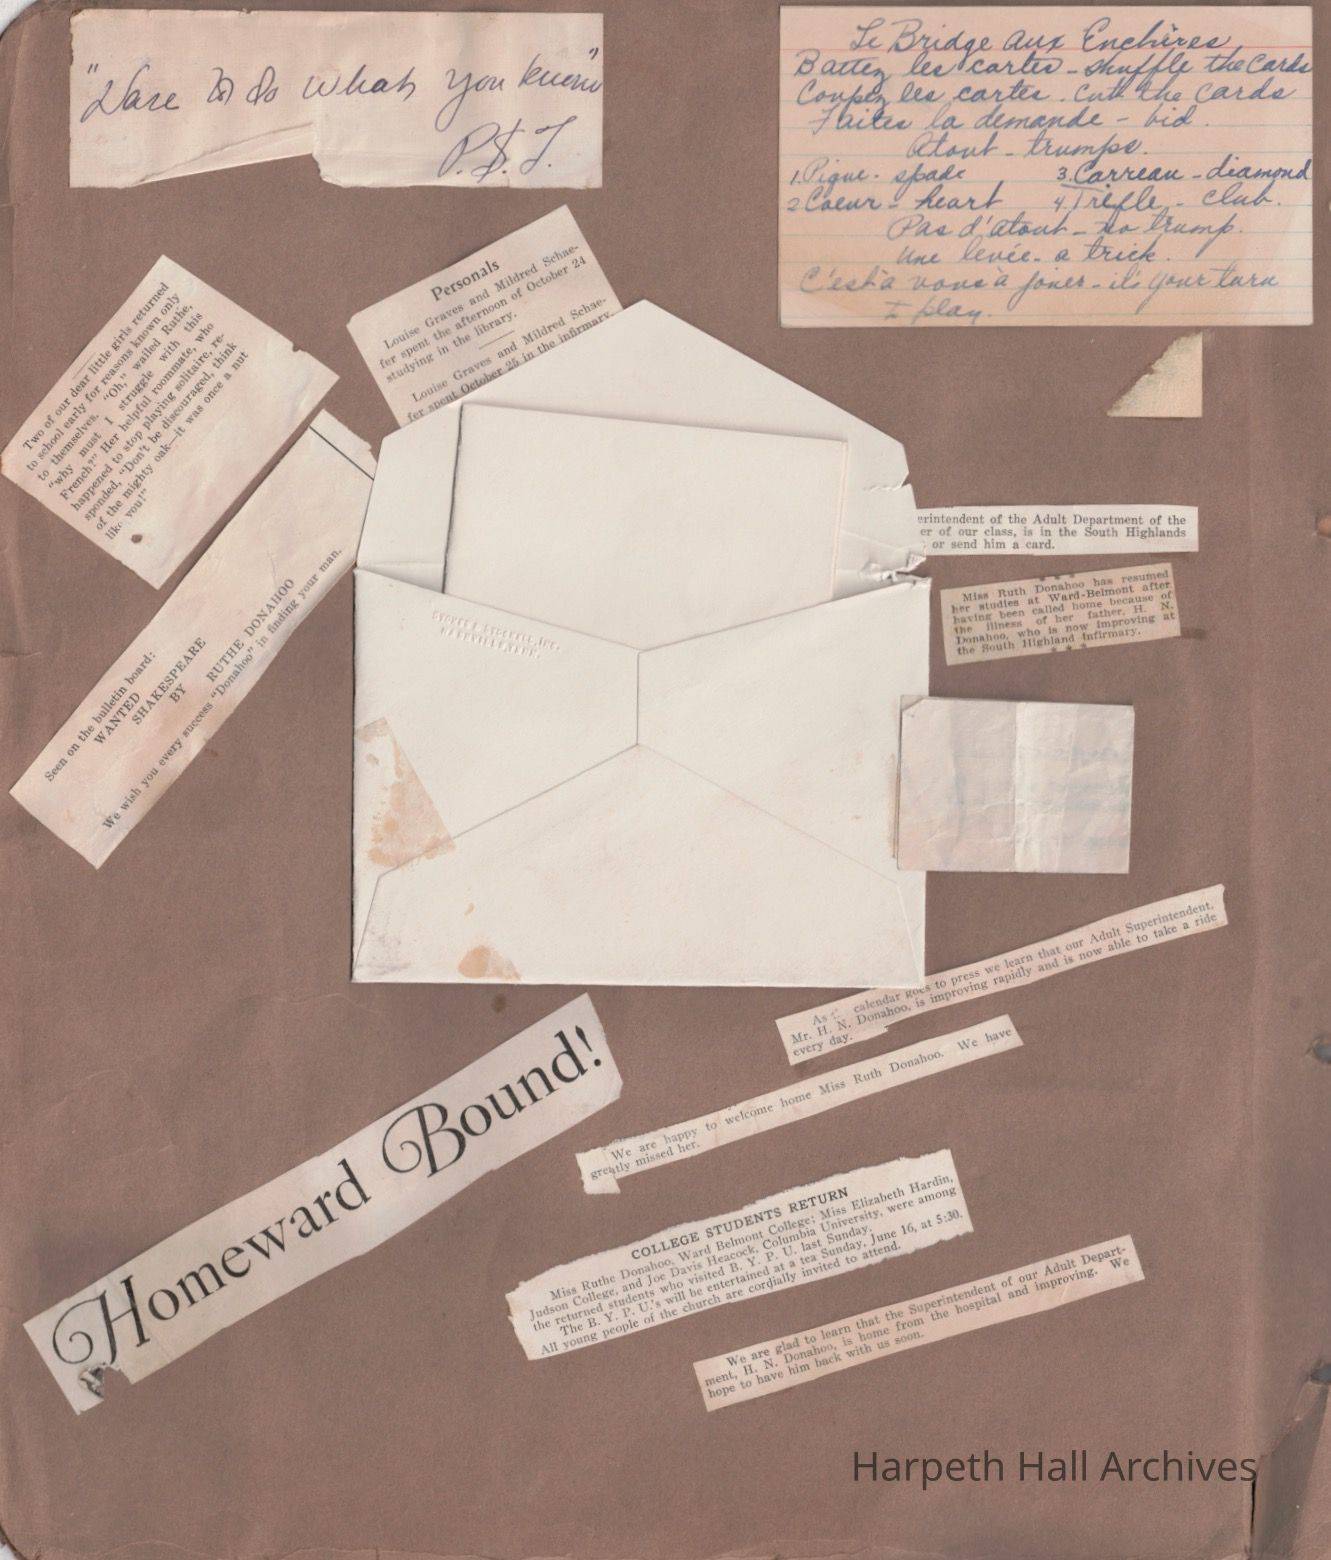 "Dare to do what you know"
P.S.T.
Le Bridge aux Enchères
Battez les cartes - shuffle the cards
Coupez les cartes. cut the cards
Faites la demande - bid.
Atout - trumps.
1. Pique - spade 3. Carreau - diamond
2 Coeur - heart 4. Trèfle - club.
Pas d'atout - no trump.
une levée - a trick.
C'est à vous à jouer - it's your turn
to play.
Personals
Louise Graves and Mildred Schae-
fer spent the afternoon of October 24
studying in the library.
Louise Graves and Mildred Schae-
fer spent October 25 in the infirmary.
Two of our dear little girls returned
to school early for reasons known only
to themselves. "Oh," wailed Ruthe,
"why must I struggle with this
French?" Her helpful roommate, who
happened to stop playing solitaire, re-
sponded, "Don't be discouraged, think
of the mighty oak—it was once a nut
like you!"
Seen on the bulletin board:
WANTED
SHAKESPEARE
BY
RUTHE DONAHOO
We wish you every success "Donahoo" in finding your man.
NASHVILLE, TENN.
erintendent of the Adult Department of the
er of our class, is in the South Highlands
or send him a card.
* * *
Miss Ruth Donahoo has resumed
her studies at Ward-Belmont after
having been called home because of
the illness of her father, H. N.
Donahoo, who is now improving at
the South Highland Infirmary.
* * *
As calendar goes to press we learn that our Adult Superintendent,
Mr. H. N. Donahoo, is improving rapidly and is now able to take a ride
every day.
We are happy to welcome home Miss Ruth Donahoo. We have
greatly missed her.
Homeward Bound!
COLLEGE STUDENTS RETURN
Miss Ruthe Donahoo, Ward Belmont College; Miss Elizabeth Hardin,
Judson College, and Joe Davis Heacock, Columbia University, were among
the returned students who visited B. Y. P. U. last Sunday.
The B. Y. P. U.'s will be entertained at a tea Sunday, June 16, at 5:30.
All young people of the church are cordially invited to attend.
We are glad to learn that the Superintendent of our Adult Depart-
ment, H. N. Donahoo, is home from the hospital and improving. We
hope to have him back with us soon.
Harpeth Hall Archives